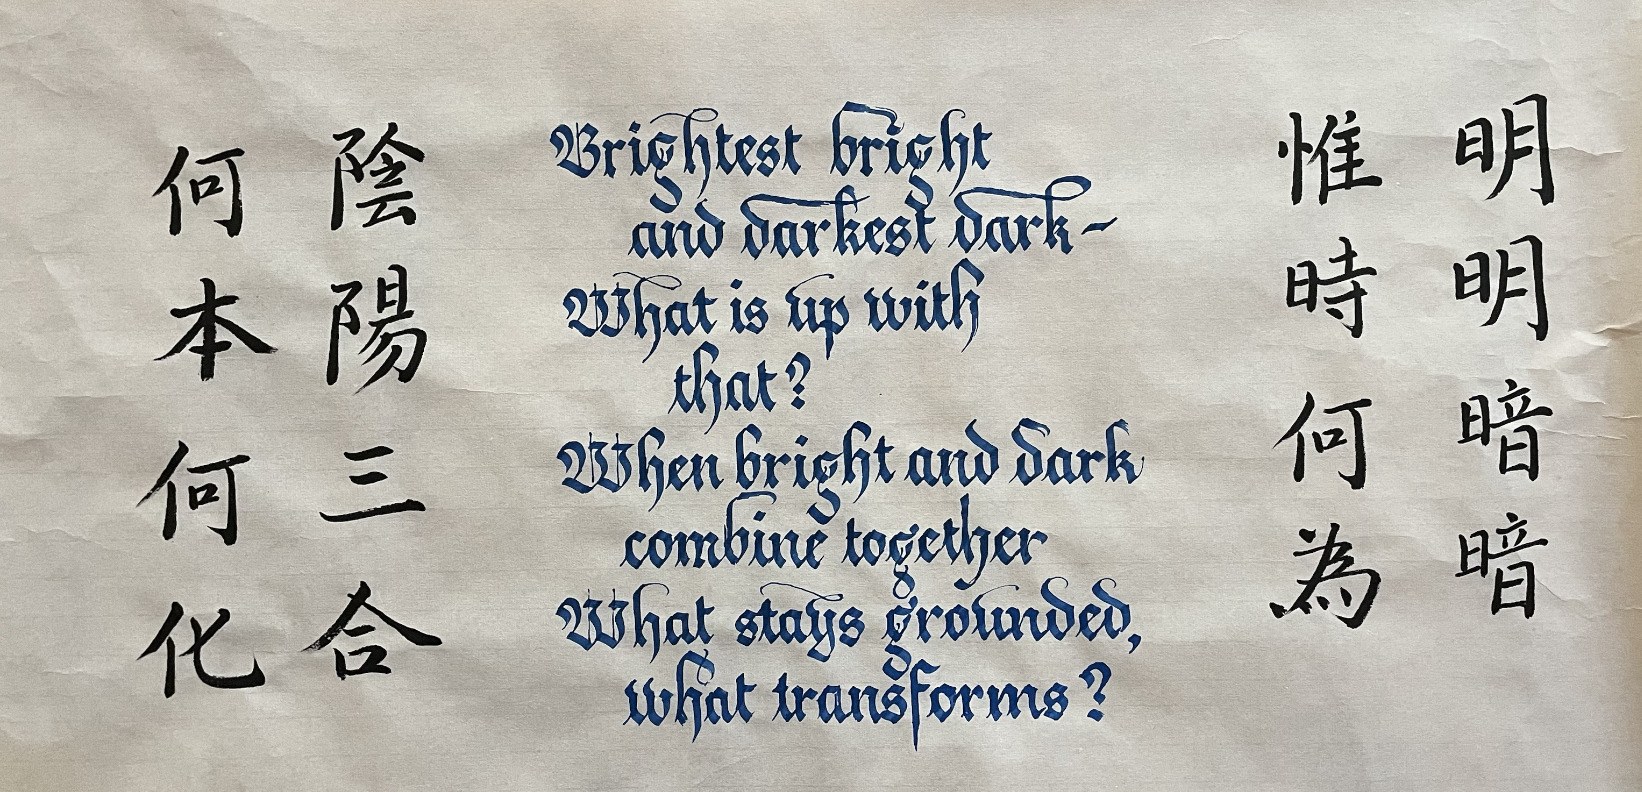 明明暗暗
惟時何為
Brightest bright
and darkest dark-
What is up with
that?
When bright and dark
combine together
What stays grounded,
what transforms?
陰陽三合
何本何化